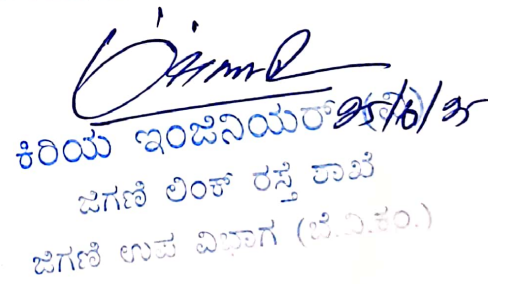 ಕಿರಿಯ ಇಂಜಿನಿಯರ್ (ವಿ) 25/6/25
ಜಿಗಣಿ ಲಿಂಕ್ ರಸ್ತೆ ಶಾಖೆ
ಜಿಗಣಿ ಉಪ ವಿಭಾಗ (ಬೆ.ವಿ.ಕಂ.)